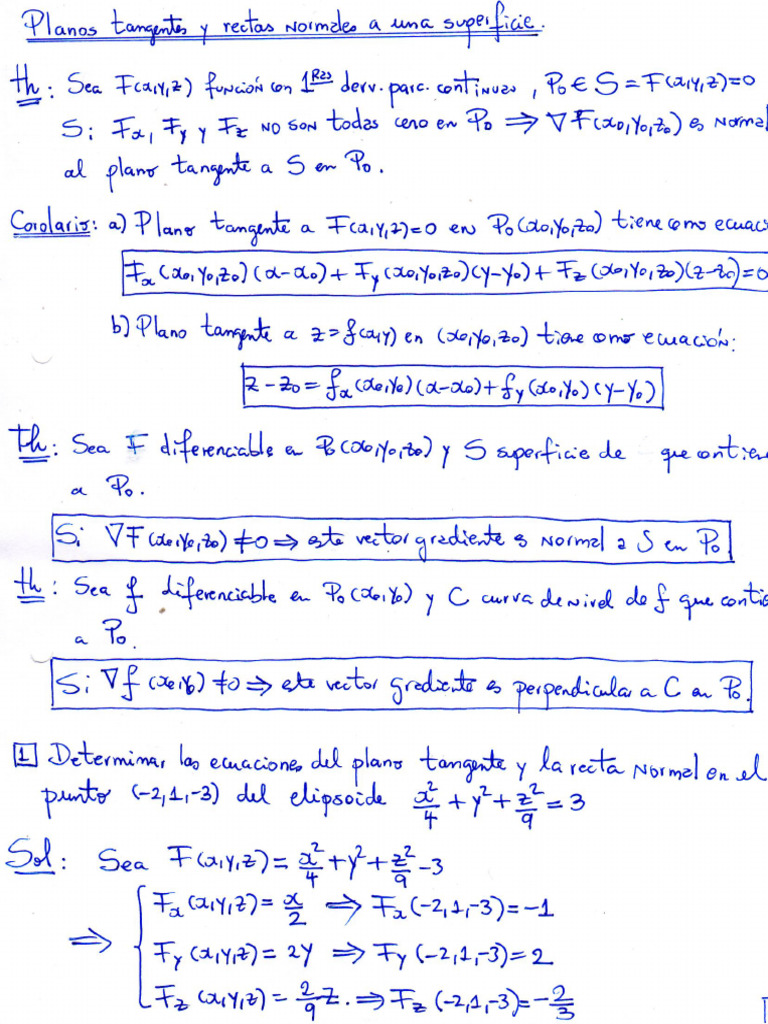 Planos tangentes y rectas normales a una superficie.
th: Sea F(x,y,z) función con 1ᴿᵃˢ derv. parc. continuas, P₀ ∈ S = F(x,y,z)=0
Si Fₓ, F_y y F_z no son todas cero en P₀ ⇒ ∇F(x₀,y₀,z₀) es norma
al plano tangente a S en P₀.
Corolario: a) Plano tangente a F(x,y,z)=0 en P₀(x₀,y₀,z₀) tiene como ecuac
Fₓ(x₀,y₀,z₀)(x-x₀) + F_y(x₀,y₀,z₀)(y-y₀) + F_z(x₀,y₀,z₀)(z-z₀)=0
b) Plano tangente a z=f(x,y) en (x₀,y₀,z₀) tiene como ecuación:
z-z₀ = fₓ(x₀,y₀)(x-x₀) + f_y(x₀,y₀)(y-y₀)
Th: Sea F diferenciable en P₀(x₀,y₀,z₀) y S superficie de que contien
a P₀.
Si ∇F(x₀,y₀,z₀) ≠0 ⇒ este vector gradiente es normal a S en P₀.
th: Sea f diferenciable en P₀(x₀,y₀) y C curva de nivel de f que contie
a P₀.
Si ∇f(x₀,y₀) ≠0 ⇒ este vector gradiente es perpendicular a C en P₀.
1 Determinar las ecuaciones del plano tangente y la recta normal en el
punto (-2,1,-3) del elipsoide x²/4 + y² + z²/9 = 3
Sol: Sea F(x,y,z) = x²/4 + y² + z²/9 - 3
⇒ { Fₓ(x,y,z) = x/2 ⇒ Fₓ(-2,1,-3) = -1
F_y(x,y,z) = 2y ⇒ F_y(-2,1,-3) = 2
F_z(x,y,z) = 2/9 z. ⇒ F_z(-2,1,-3) = -2/3